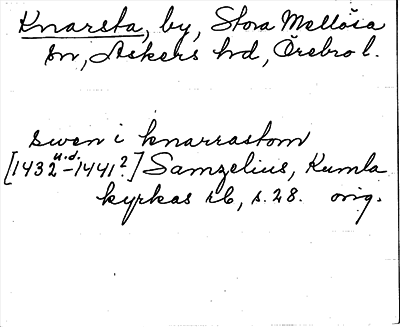 Knarsta, by, Stora Mellösa
sn, Askers hd, Örebro l.
swen i knarrastom
[1432 u.d. -1441?] Samzelius, Kumla
kyrkas rb, s. 28. orig.